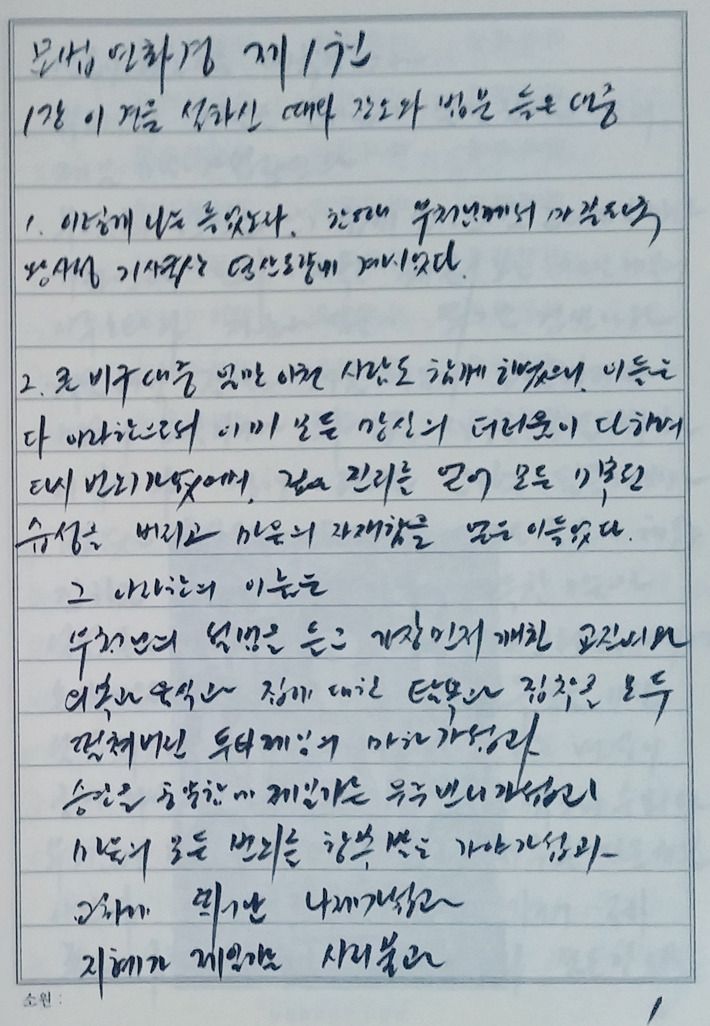 묘법연화경 제1권
1장 이 경을 설하신 때와 장소와 법문 들은 대중
1. 이렇게 나는 들었노라. 한때 부처님께서 마가다국
왕사성 기사굴산 영산도량에 계시었다.
2. 큰 비구 대중 일만 이천 사람도 함께 하였으니, 이들은
다 아라한으로서 이미 모든 망심의 더러움이 다하여
다시 번뇌가 없으며, 진리를 얻어 모든
습성을 버리고 마음의 자재함을 얻은 이들었다.
그 아라한의 이름은
부처님의 설법을 듣고 가장 먼저 깨친 교진여와
의복과 음식과 집에 대한 탐욕과 집착을 모두
떨쳐버린 두타제일의 마하가섭과
승단을 화합함에 제일가는 우루빈나가섭과
마음의 모든 번뇌를 항복 받은 가야가섭과
교화에 뛰어난 나제가섭과
지혜가 제일가는 사리불과
소원 :
1